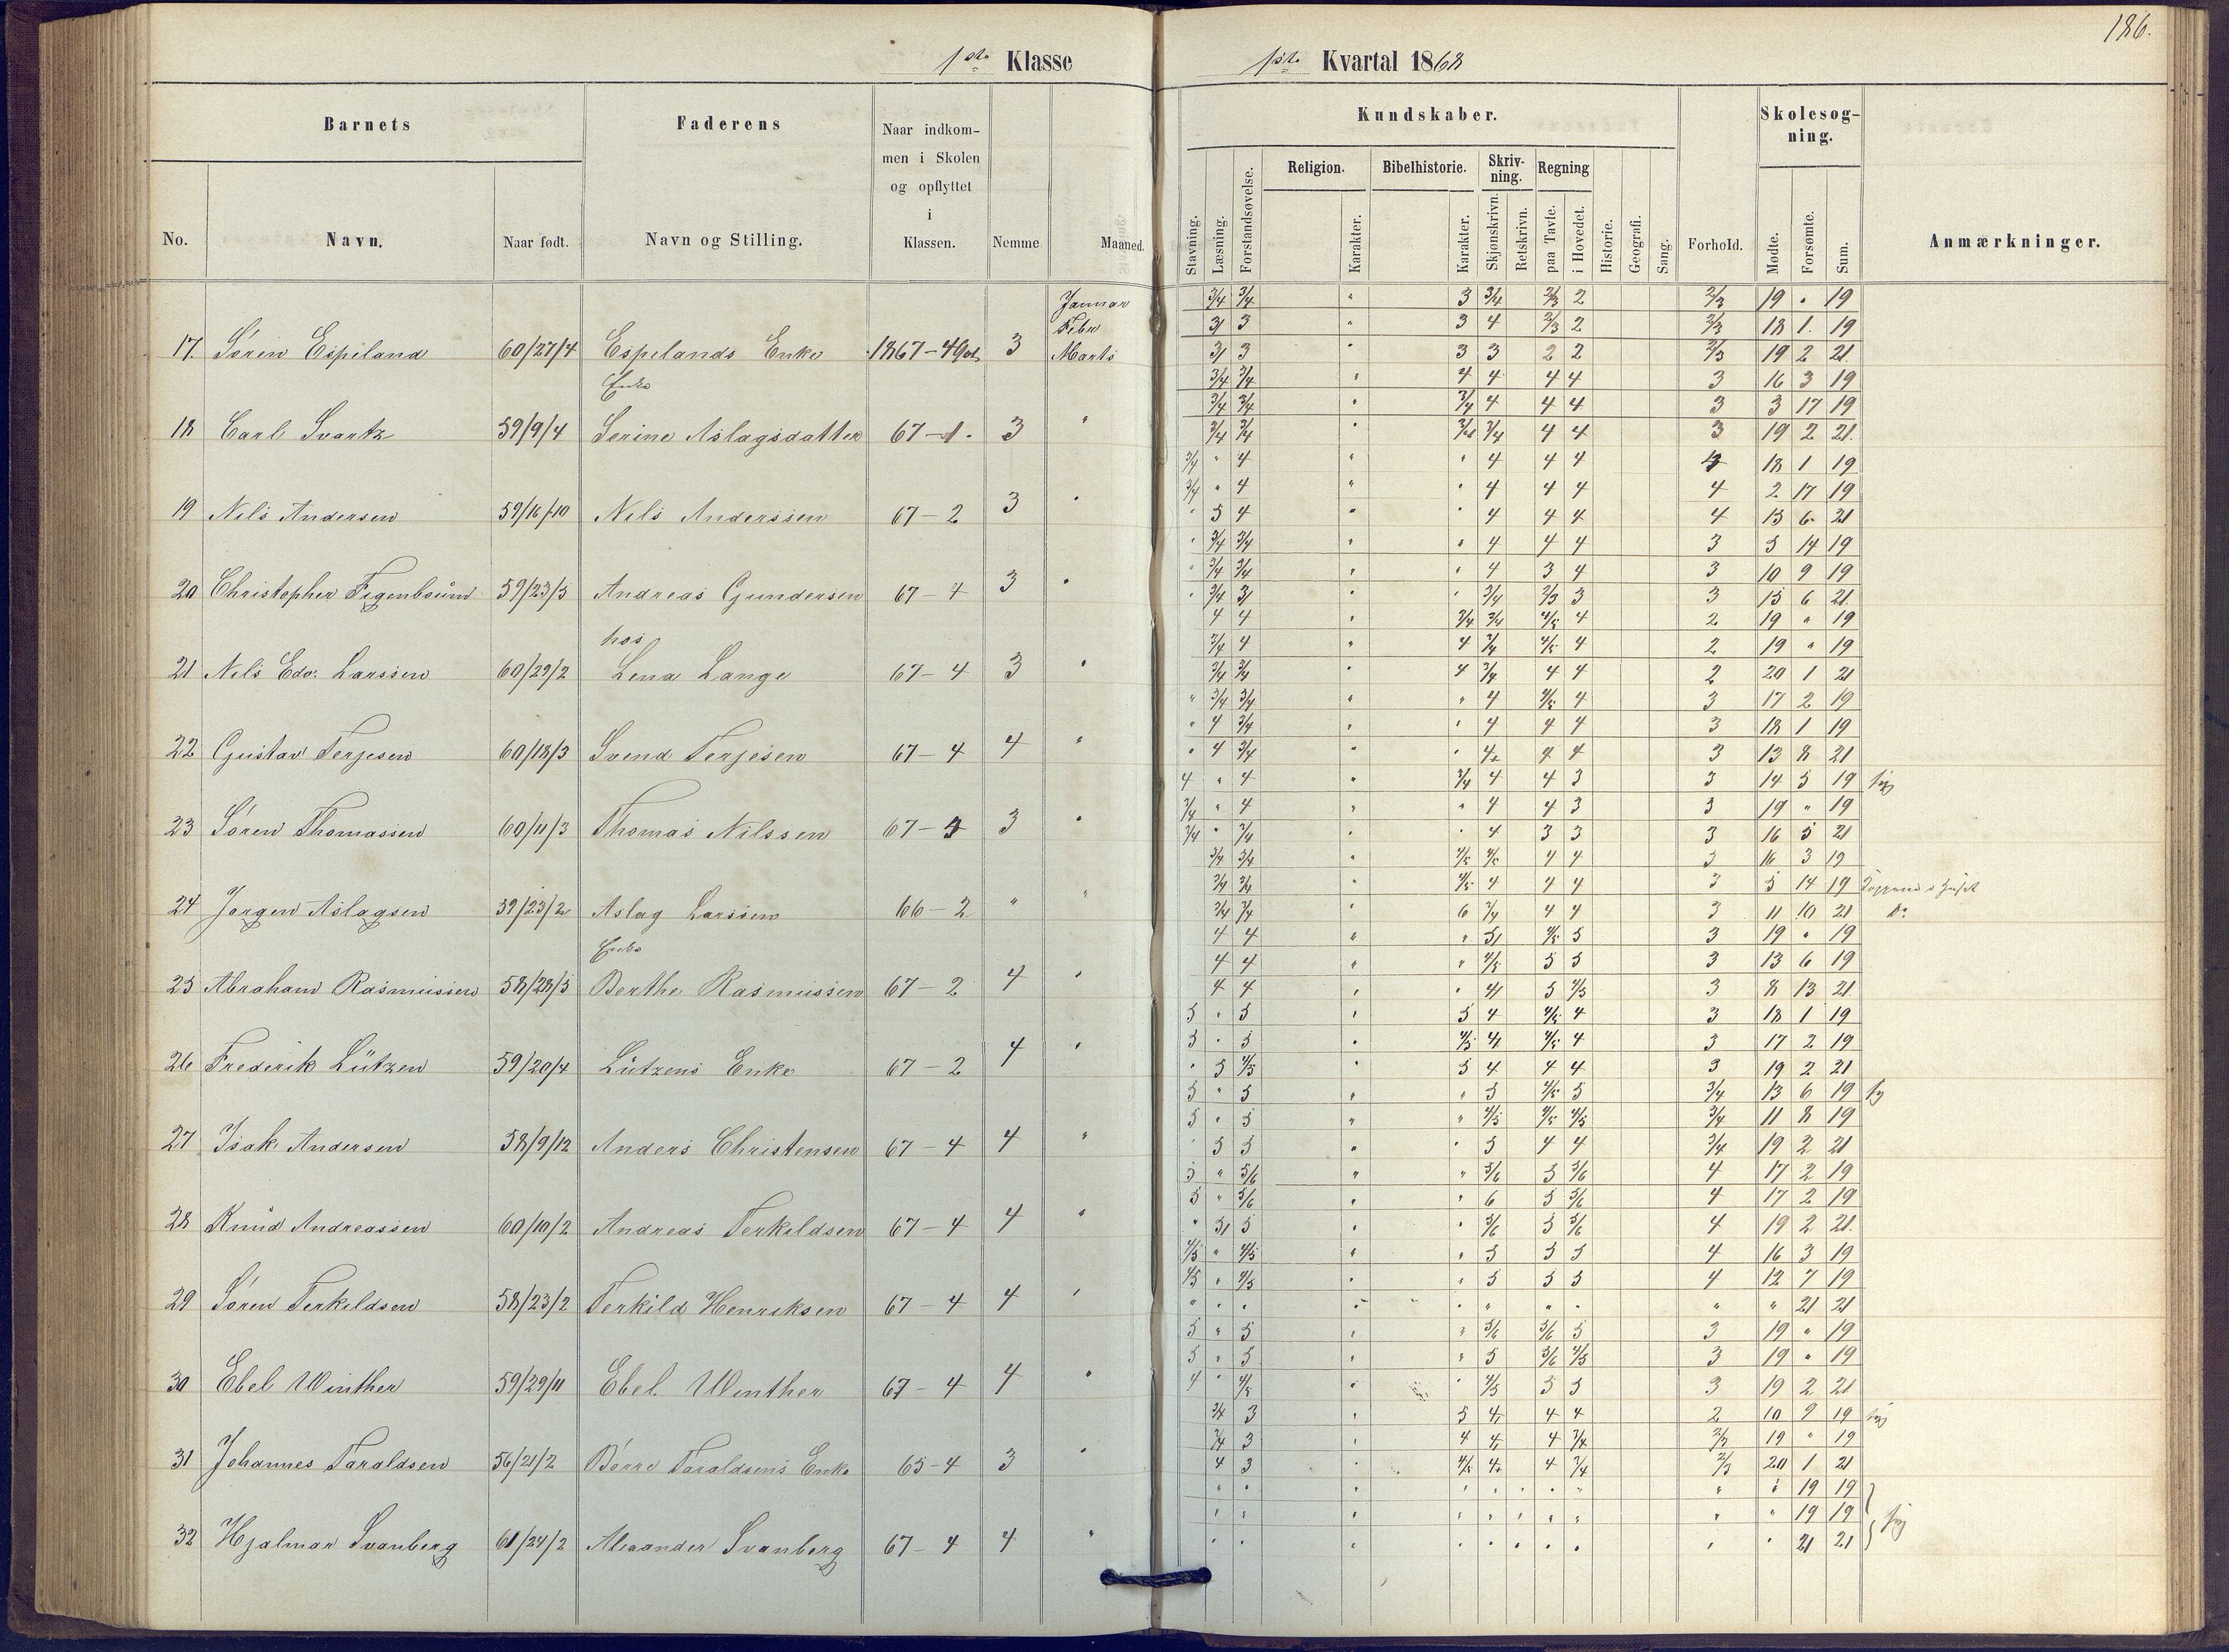 186.
1ste Klasse
1ste Kvartal 1868
Barnets
Faderens
Naar indkom-
men i Skolen
og opflyttet
i
Klassen.
Nemme
Maaned.
No.
Navn.
Naar født.
Navn og Stilling.
Kundskaber.
Skolesøg-
ning.
Religion.
Bibelhistorie.
Skriv-
ning.
Regning
Stavning.
Læsning.
Forstandsøvelse.
Karakter.
Karakter.
Skjønskrivn.
Retskrivn.
paa Tavle.
i Hovedet.
Historie.
Geografi.
Sang.
Forhold.
Mødte.
Forsømte.
Sum.
Anmærkninger.
Januar 3/4 3/4 " 3 3/4 2/3 2 2/3 19 " 19
Febr 3 3 " 3 4 2/3 2 2/3 18 1 19
17. Søren Espeland 60/27/4 Espelands Enke 1867-4 3 Marts 3 3 " 3 3 2 2 2/3 19 2 21
Enke 3/4 3/4 " 4 4 4 4 3 16 3 19
3/4 3/4 " 3/4 4 4 4 3 3 17 19
18 Carl Svartz 59/9/4 Serine Aslagsdatter 67-1. 3 " 3/4 3/4 " 3/4 3/4 4 4 3 19 2 21
3/4 " 4 " " 4 4 4 4 18 1 19
3/4 " 4 " " 4 4 4 4 2 17 19
19 Nils Andersen 59/16/10 Nils Anderssen 67-2 3 " " 5 4 " " 4 4 4 4 15 6 21
" 3/4 3/4 " " 4 4 4 3 5 14 19
" 3/4 3/4 " " 4 3 4 3 10 9 19
20 Christopher 59/23/5 Andreas Gundersen 67-4 3 " " 3/4 3 " " 3/4 2/3 3 3 15 6 21
hos 4 4 " 3/4 3/4 4/5 4 2 19 " 19
3/4 4 " 4 3/4 4/5 4 2 19 " 19
21 Nils Edv. Larssen 60/29/2 Lena Lange 67-4 3 " 3/4 3/4 " 4 3/4 4 4 2 20 1 21
" 3/4 3/4 " " 4 4/5 4 3 17 2 19
" 4 3/4 " " 4 4 4 3 18 1 19
22 Gustav Terjesen 60/18/3 Svend Terjesen 67-4 4 " " 4 3/4 " " 4 4 4 3 13 8 21
4 " 4 " 3/4 4 4 3 3 14 5 19 syg
3/4 " 4 " " 4 4 3 3 19 " 19
23 Søren Thomassen 60/11/3 Thomas Nilssen 67-4 3 " 3/4 " 3/4 " " 4 3 3 3 16 5 21
3/4 3/4 " 4/5 4/5 4 4 3 16 3 19
3/4 3/4 " 4/5 4 4 4 3 5 14 19
24 Jørgen Aslagsen 59/23/2 Aslag Larssen 66-2 " " 3/4 3/4 " 6 3/4 4 4 3 11 10 21 Do
Enke 4 4 " " 5 4/5 5 3 19 " 19
4 4 " " 4/5 5 5 3 13 6 19
25 Abraham Rasmussen 58/28/5 Berthe Rasmussen 67-2 4 " 4 4 " " 4 5 4/5 3 8 13 21
5 " 5 " 5 4 4/5 4 3 18 1 19
5 " 5 " 4/5 4 4/5 4 3 17 2 19
26 Frederik Lützen 59/20/4 Lützens Enke 67-2 4 " " 5 4/5 " 5 4 4 4 3 19 2 21
5 " 5 " " 5 4/5 5 3/4 13 6 19 syg
5 " 5 " " 4/5 4/5 4/5 3/4 11 8 19
27 Isak Andersen 58/9/12 Anders Christensen 67-4 4 " " 5 5 " " 5 4 4 3/4 19 2 21
5 " 5/6 " " 5/6 5 5/6 4 17 2 19
5 " 5/6 " " 6 5 5/6 4 17 2 19
28 Knud Andreassen 60/10/2 Andreas Terkildsen 67-4 4 " " 5 5 " " 5/6 5 5/6 4 19 2 21
4/5 " 4/5 " " 5 5 5 4 16 3 19
4/5 " 4/5 " " 5 5 5 4 12 7 19
29 Søren Terkildsen 58/23/2 Terkild Henriksen 67-4 4 " " " " " " " " " " " 21 21
5 " 5 " " 5/6 5/6 5 3 19 " 19
5 " 5 " " 5 5/6 4/5 3 19 " 19
30 Ebel Winther 59/29/11 Ebel Winther 67-4 4 " 4 " 4/5 " " 4/5 5 5 3 19 2 21
3/4 3 " 5 4 4 4 2 10 9 19 syg
3/4 3 " 4 4 4 3/4 2/3 19 " 19
31 Johannes Taraldsen 56/21/2 Børre Taraldsens Enke 65-4 3 " 4 3 " 4/5 4 4 3/4 2/3 20 1 21
" " " " " " " " " 19 19
" " " " " " " " " 19 19 syg
32 Hjalmar Svanberg 61/24/2 Alexander Svanberg 67-4 4 " " " " " " " " " " 21 21